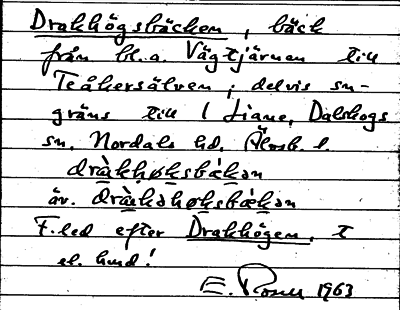 Drakhögsbäcken, bäck
från bl.a. Vägtjärnen till
Teåkersälven; delvis sn-
gräns till Dalskogs
sn, Nordals hd, Älvsb. l.
dràkhøksbɛ̀kən
äv. dràkəhøksbɛ̀kən
F.led efter Drakhögen, t
el. hund!
E. Rosell 1963